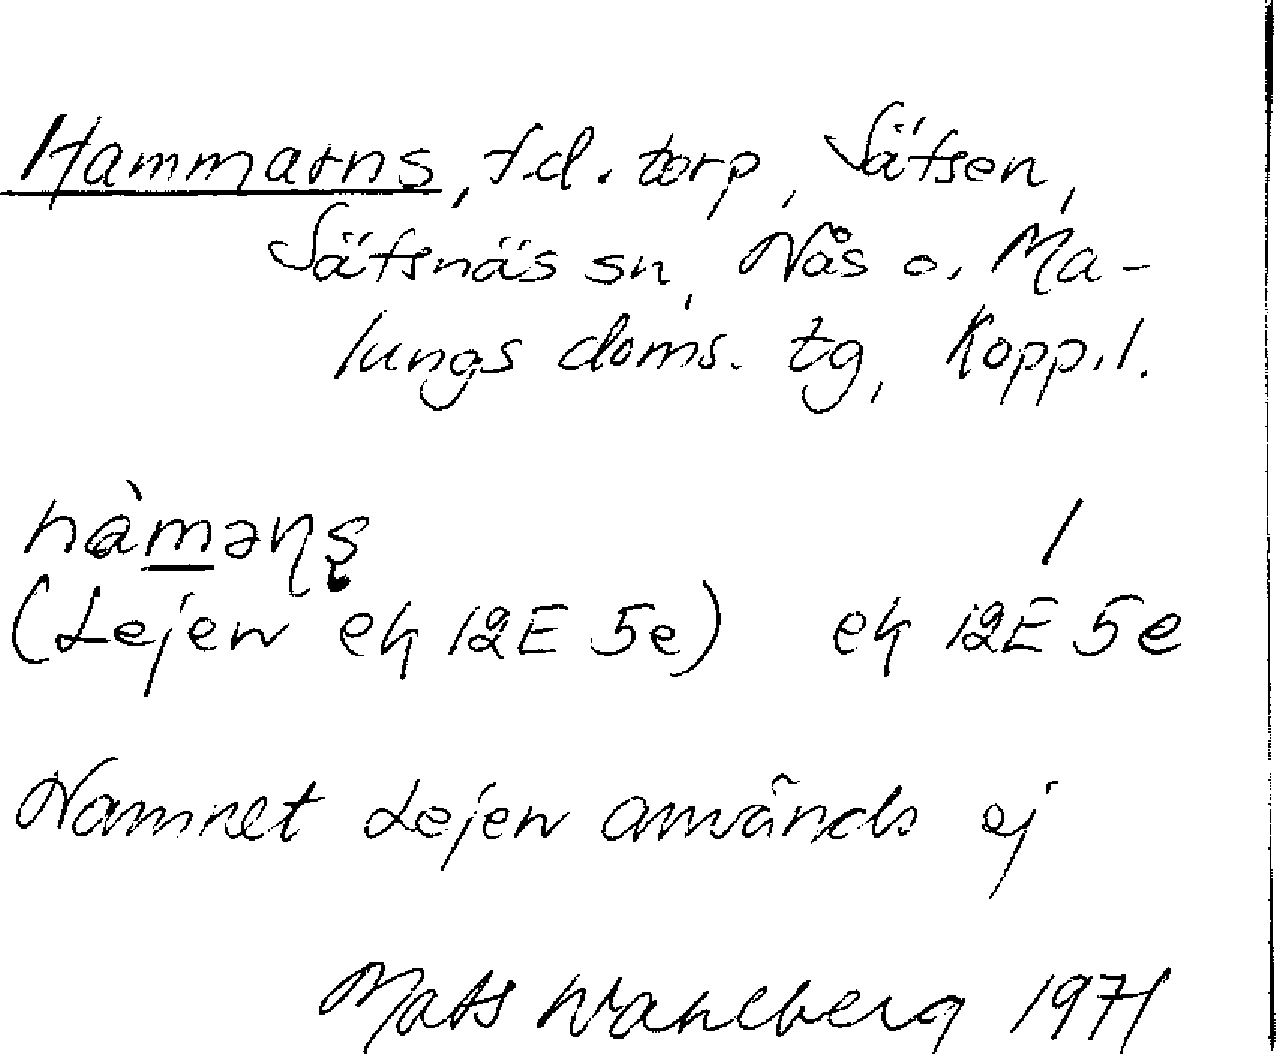 Hammarns, f.d. torp, Säfsen,
Säfsnäs sn, Nås o. Ma-
lungs doms. tg, Kopp. l.
hàmaɳʂ /
(Lejen ek 12E 5e) ek 12E 5e
Namnet Lejen används ej
Mats Wahlberg 1971